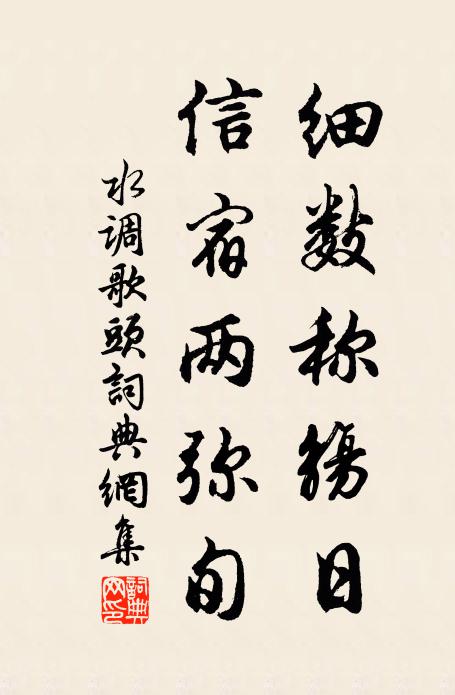 细数称觞日
信宿两弥旬
水调歌头詞典網集
詞典网印